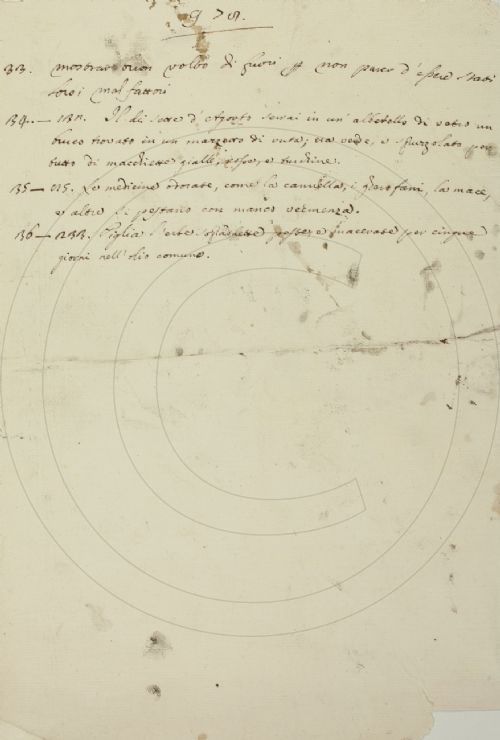 33. mostrar buon volto di fuori non parer d'essere stati
loro i malfattori
34. — Il di sette d'Agosto serrai in un' alberello di vetro un
bruco trovato in un mazzetto di ruta; era verde, e spruzzolato per
tutto di macchiette gialle, rosse, e turchine.
35 — Le medicine odorate, come la cannella, i gherofani, la mace,
e altre si pestano con manco veemenza.
36 — 233. Piglia l'erbe peste e macerate per cinque
giorni nell'olio comune.